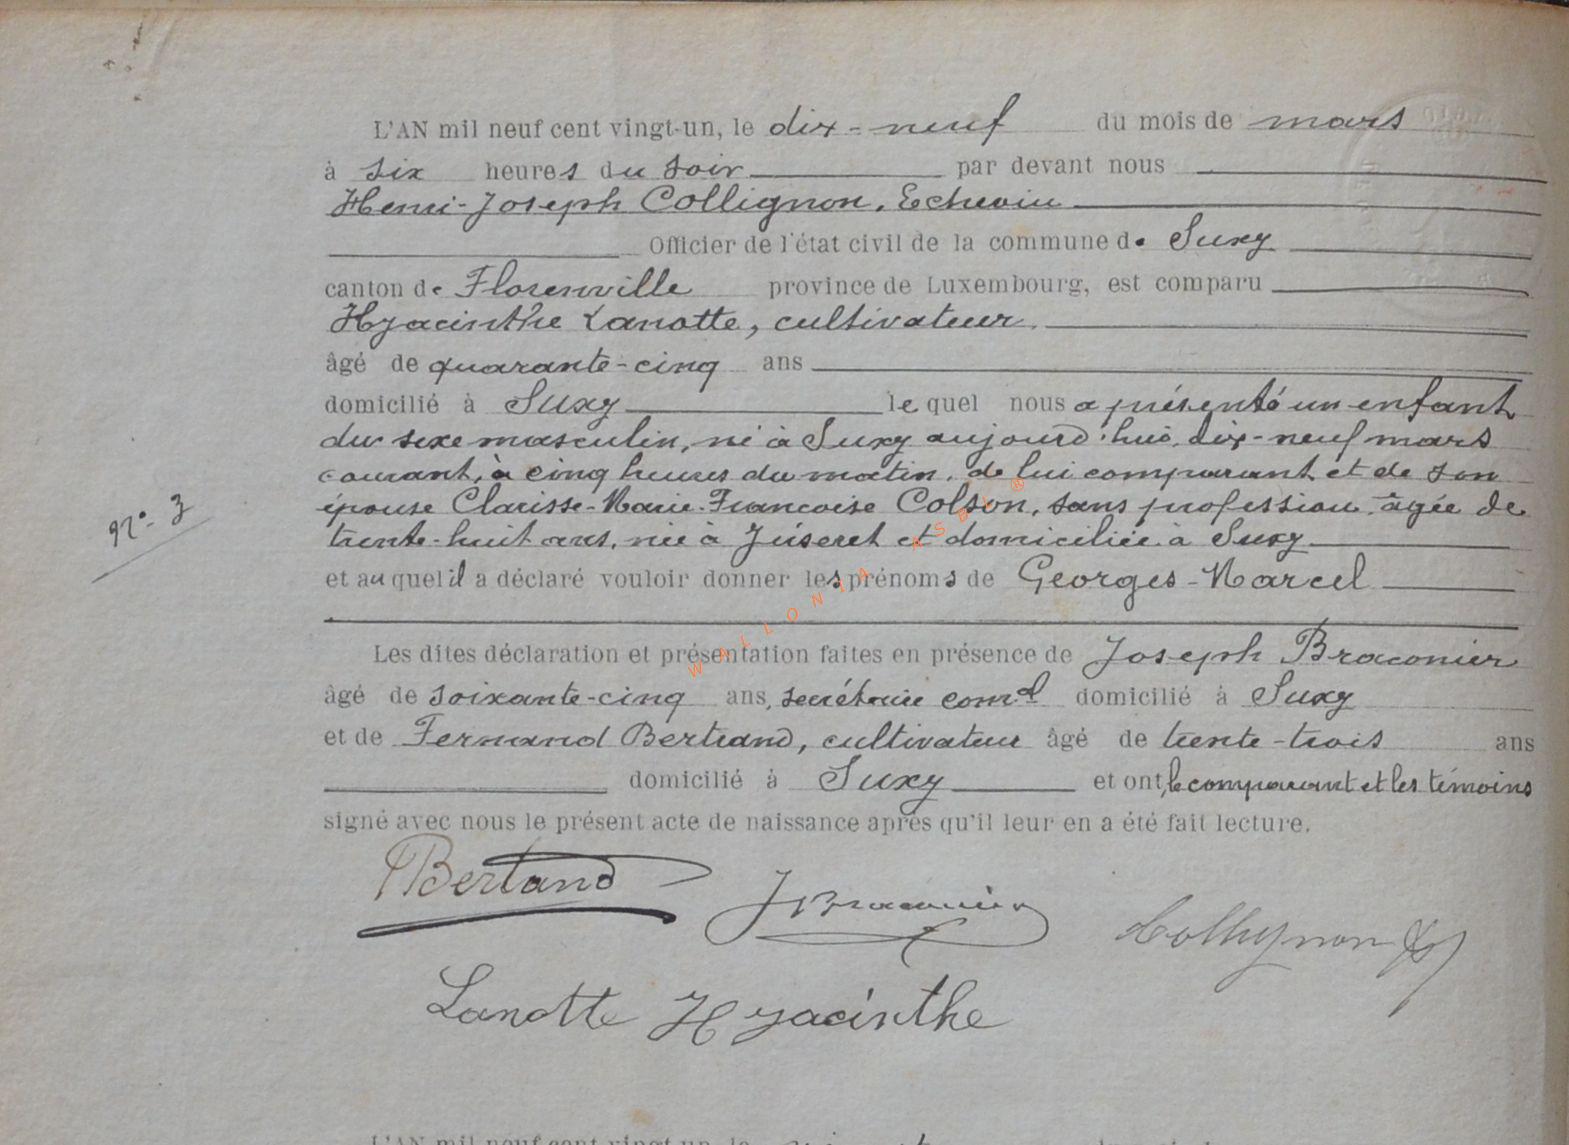 L'AN mil neuf cent vingt-un, le dix-neuf du mois de mars
à six heures du soir par devant nous
Henri-Joseph Collignon, Echevin
Officier de l'état civil de la commune de Suxy
canton de Florenville province de Luxembourg, est comparu
Hyacinthe Lanotte, cultivateur,
âgé de quarante-cinq ans
domicilié à Suxy lequel nous a présenté un enfant
du sexe masculin, né à Suxy aujourd'hui, dix-neuf mars
courant, à cinq heures du matin, de lui comparant et de son
épouse Clarisse-Marie-Francoise Colson, sans profession, âgée de
N° 3
trente-huit ans, née à Juseret et domiciliée à Suxy
et auquel il a déclaré vouloir donner les prénoms de Georges-Marcel
Les dites déclaration et présentation faites en présence de Joseph Braconier
âgé de soixante-cinq ans, secrétaire comal domicilié à Suxy
et de Fernand Bertrand, cultivateur âgé de trente-trois ans
domicilié à Suxy et ont, le comparant et les témoins
signé avec nous le présent acte de naissance après qu'il leur en a été fait lecture.
Bertrand JBraconier Collignon HJ
Lanotte Hyacinthe
WALLONIA ASBL ®
L'AN mil neuf cent vingt-un, le